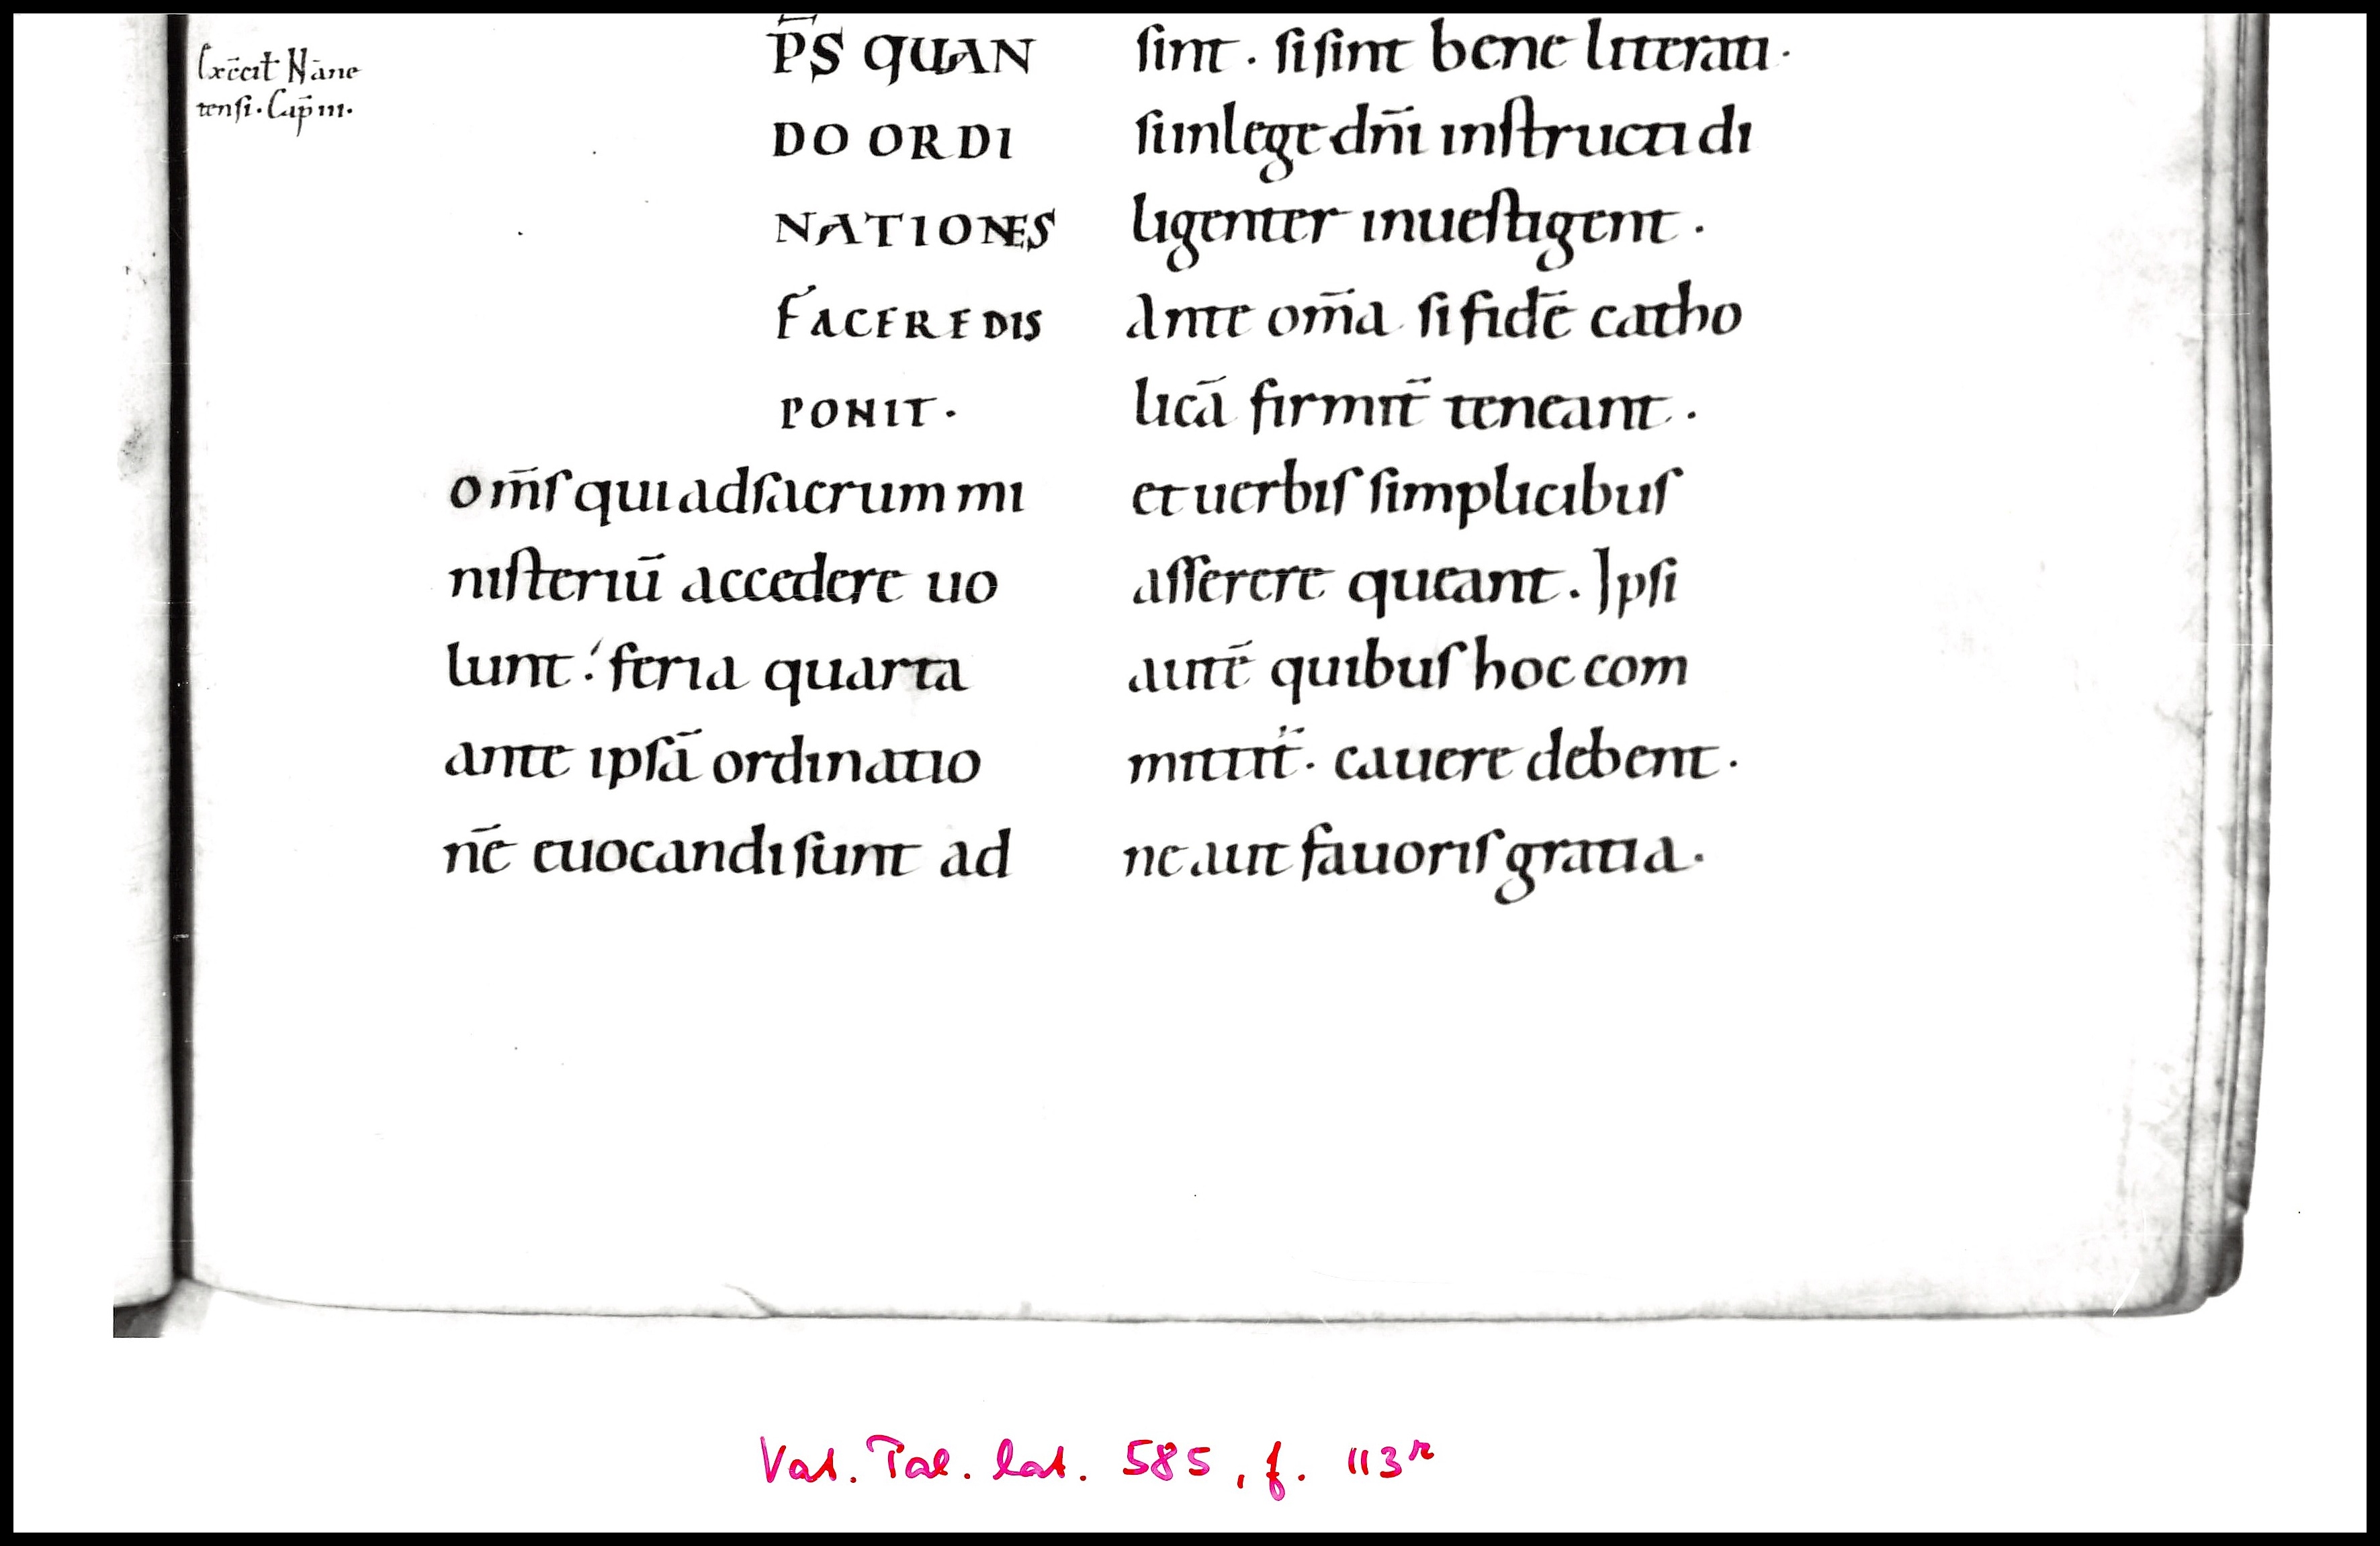 Ex c̄cit̄ Nāne
tensi. Cap̄ III.
P̄S QUAN
DO ORDI
NATIONES
FACERE DIS
PONIT.
om̄s qui ad sacrum mi
nisteriū accedere uo
lunt. feria quarta
ante ipsā ordinatio
nē euocandi sunt ad
sint. si sint bene litterati.
si in lege dn̄i instructi di
ligenter inuestigent.
Ante om̄a si fidē catho
licā firmit̄ teneant.
et uerbis simplicibus
asserere queant. Ipsi
autē quibus hoc com
mittit̄. cauere debent.
ne aut fauoris gratia.
Vat. Pal. lat. 585, f. 113r